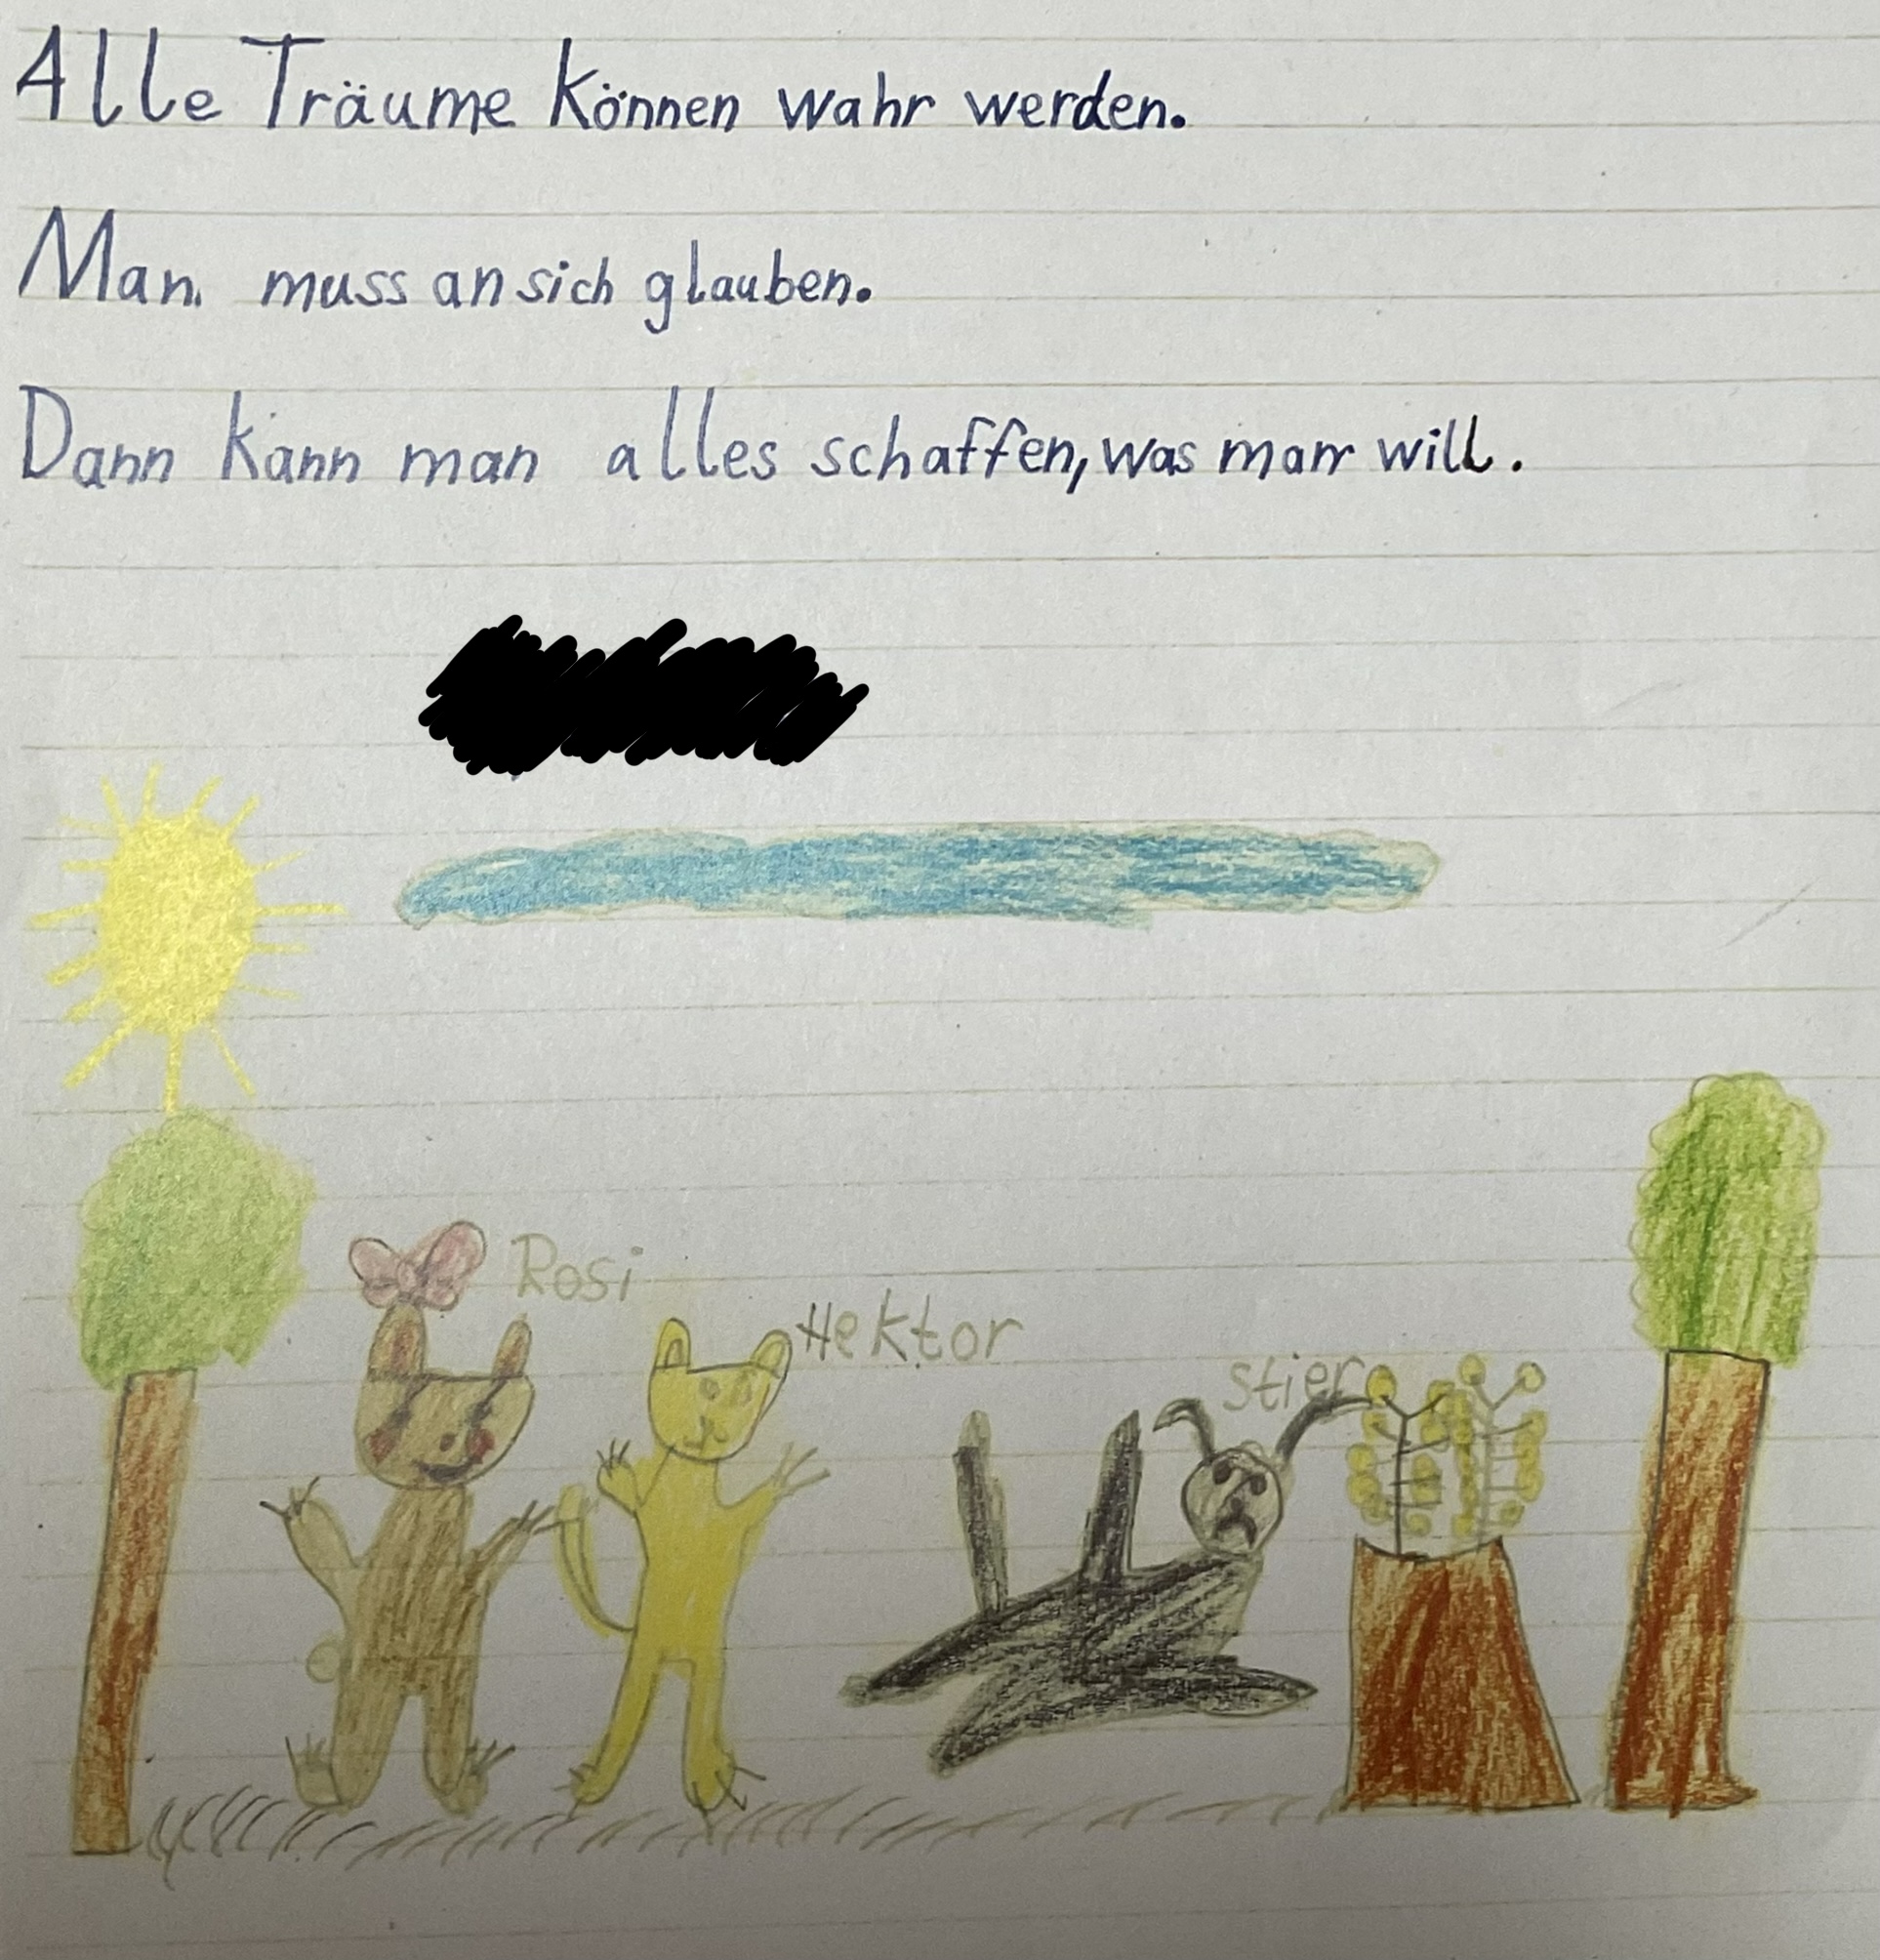 Alle Träume können wahr werden.
Man muss an sich glauben.
Dann kann man alles schaffen, was man will.
Rosi
Hektor
Stier